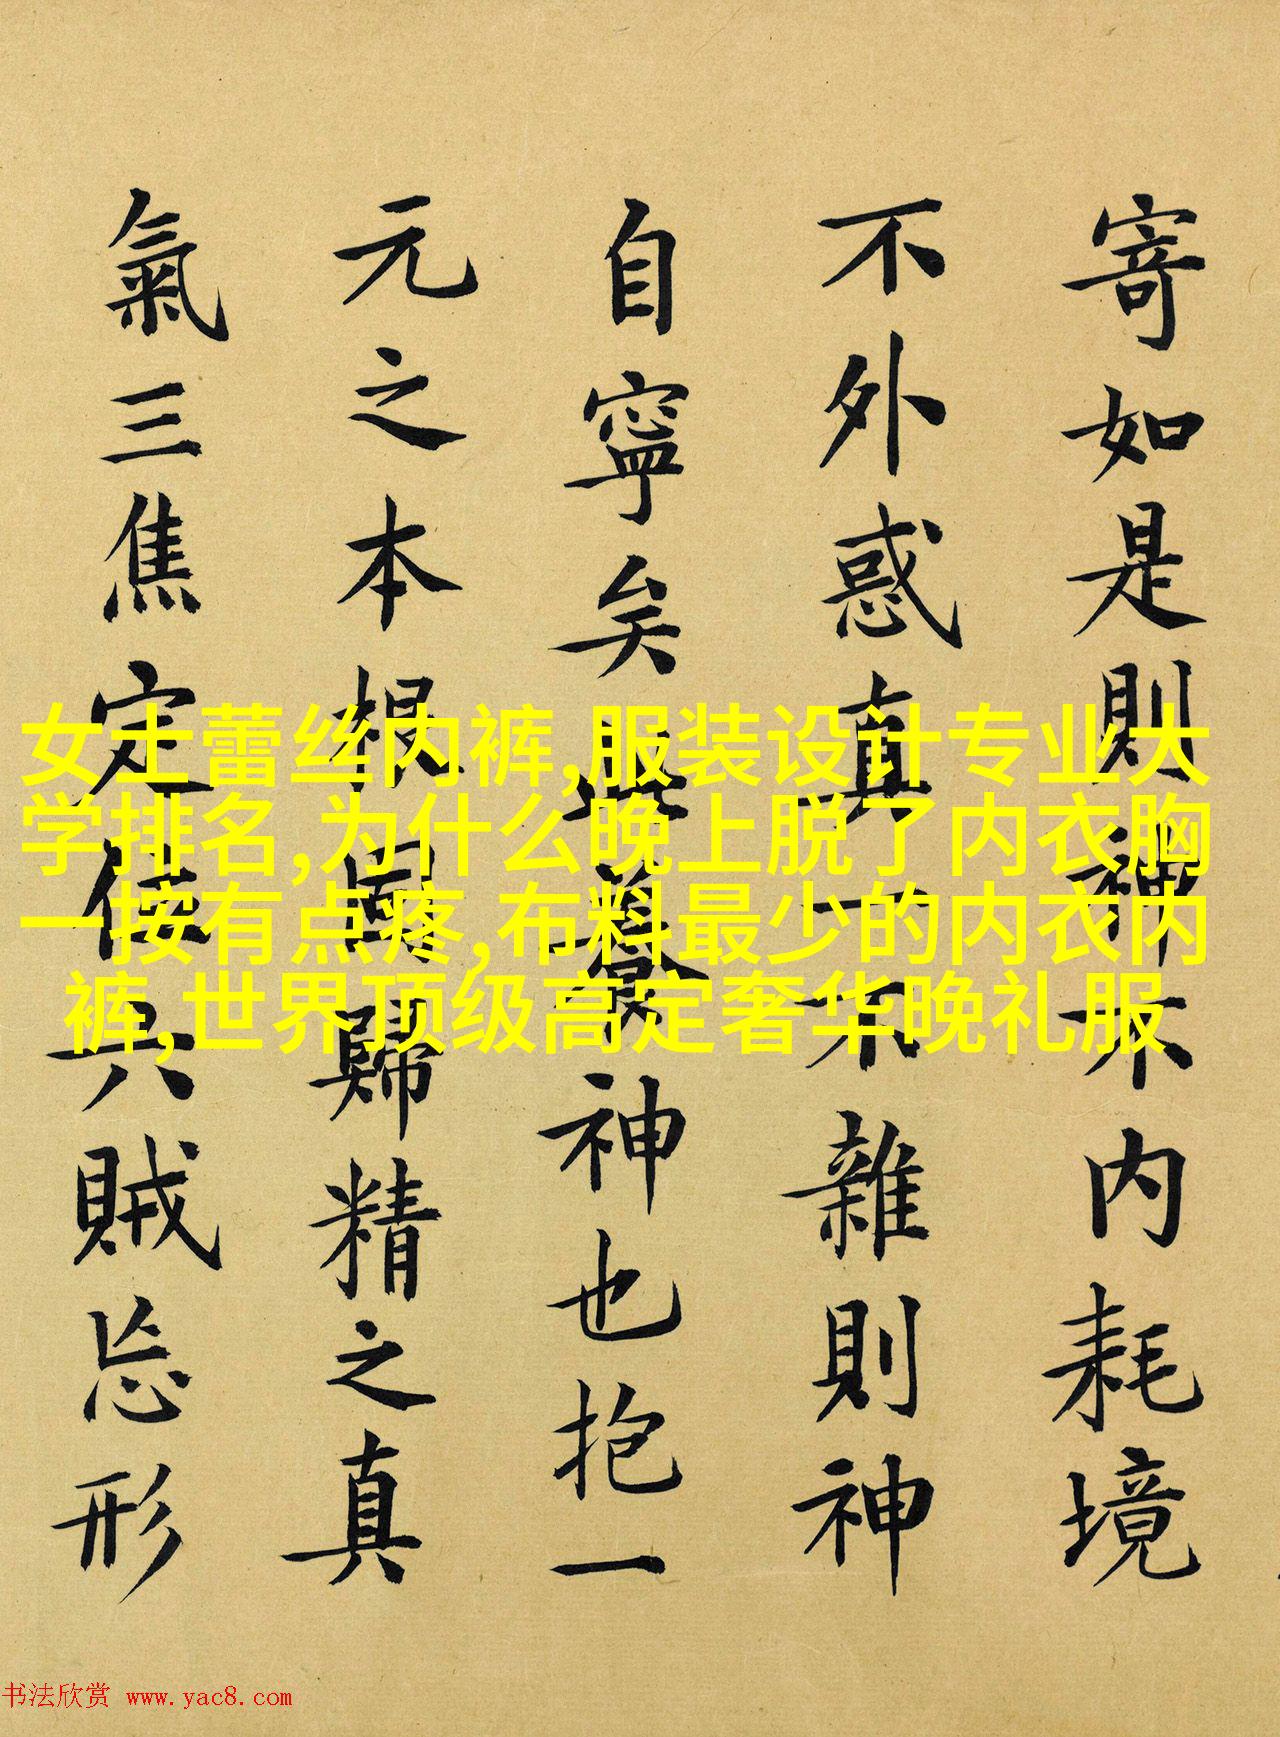 寄如是則神不内耗境
不外惑真一不雜則神
自寧矣此養神也抱一
元之本根固歸精之真
氣三焦定位六賊忘形
女士蕾丝内裤,服装设计专业大
学排名,为什么晚上脱了内衣胸
一按有点疼,布料最少的内衣内
裤,世界顶级高定奢华晚礼服
书法欣赏 www.yac8.com